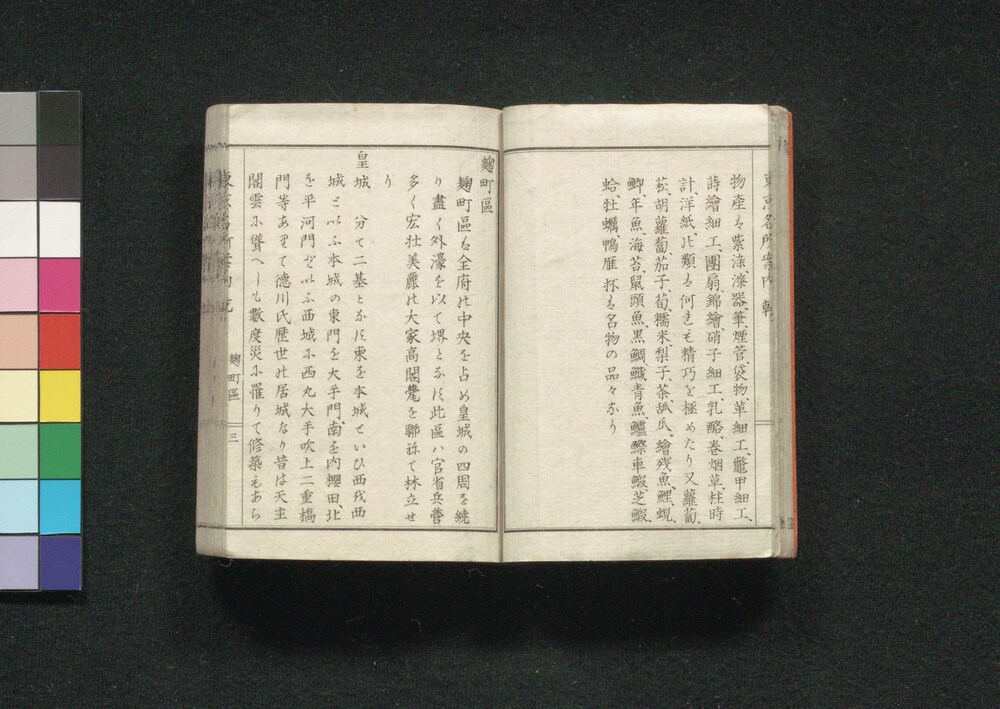 東京名所案内 乾
物産は紫染、漆器、筆、煙管、袋物、革細工、鼈甲細工、
蒔繪細工、團扇、錦繪硝子細工、乳酪、巻烟草、柱時
計、洋紙此類は何れも精巧を極めたり又蘿蔔、
菘、胡蘿蔔茄子、荀、糯米梨子、茶、甜瓜、繪残魚、鯉、蜆、
鯽、年魚、海苔、鼠頭魚、黒鯛、鱵青魚、鱸、鰶車鰕、芝鰕、
蛤、牡蠣、鴨雁杯は名物の品々なり
麹町區
麹町區は全府の中央を占め皇城の四周を繞
り盡く外濠を以て堺となす此區ハ官省兵營
多く宏壮美麗の大家高閣甍を聯ねて林立せ
り
皇城 分て二基となす東を本城といひ西を西
城といふ本城の東門を大手門、南を内櫻田、北
を平河門といふ西城に西丸大手吹上二重橋
門等ありて徳川氏歴世の居城なり昔は天主
閣雲に聳へしも數度災に罹りて修築もあら
麹町區 三